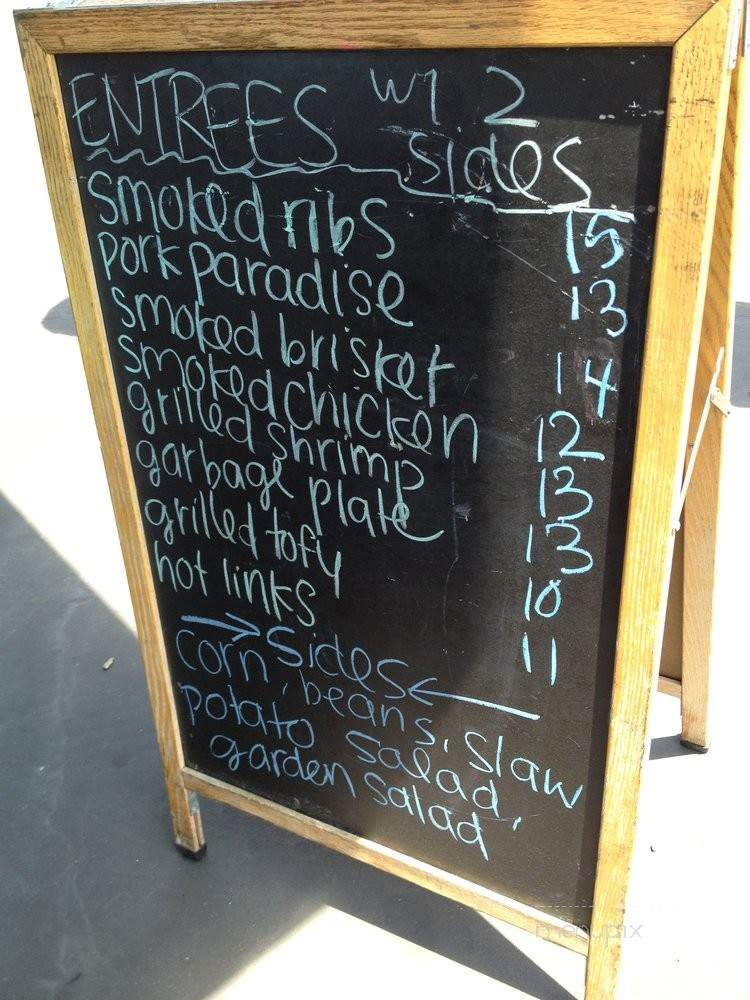 ENTREES w/ 2
sides
smoked ribs 15
pork paradise 13
smoked brisket 14
smoked chicken 12
grilled shrimp 13
garbage plate 13
grilled tofu 10
hot links 11
→ sides ←
corn, beans, slaw
potato salad,
garden salad
menupix